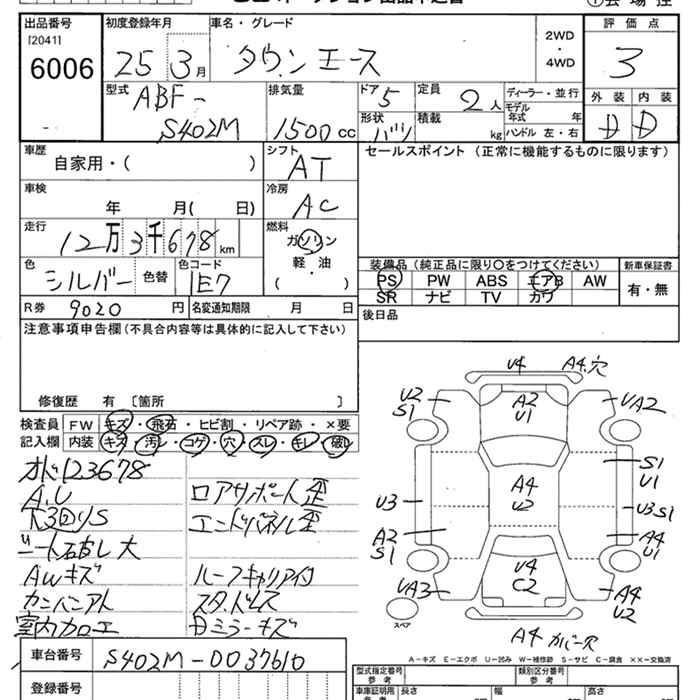 出品番号
[2041]
6006
初度登録年月
25 3月
車名・グレード
タウンエース
2WD
・
4WD
評価点
3
外装 内装
D D
型式
ABF-
S402M
排気量
1500 cc
ドア
5
形状
バン
定員
2人
積載
kg
ディーラー・並行
モデル
年式 年
ハンドル 左・右
車歴
自家用・( )
シフト
AT
車検
年 月( 日)
冷房
AC
走行
12万3千678km
燃料
ガソリン
軽・油
( )
色
シルバー
色替
色コード
1E7
R券 9020 円
名変通知期限 月 日
セールスポイント (正常に機能するものに限ります)
装備品 (純正品に限り〇をつけてください)
PS PW ABS エアB AW
SR ナビ TV カワ
新車保証書
有・無
後日品
注意事項申告欄 (不具合内容等は具体的に記入して下さい)
修復歴 有 〔箇所 〕
検査員
記入欄
FW キズ・飛石・ヒビ割・リペア跡・×要
内装 キズ・汚レ・コゲ・穴・スレ・キレ・破レ
オド123678
A.U
下3回りS
シート破レ大
AWキズ
カンバンアト
室内カロエ
ロアサポート歪
エンドパネル歪
ルーフキャリア付
スタッドレス
Dミラーキズ
車台番号
S402M-0037610
登録番号
U4
A4.穴
U2
S1
A2
U1
UA2
S1
U1
U3
A4
U2
U3 S1
A2
S1
A4
U1
U4
C2
UA3
A4
U2
スペア
A4 カバー穴
A-キズ E-エクボ U-凹み W-補修跡 S-サビ C-腐食 ××-交換済
型式指定番号
参考
類別区分番号
参考
車庫証明用
参考
長さ
幅
高さ